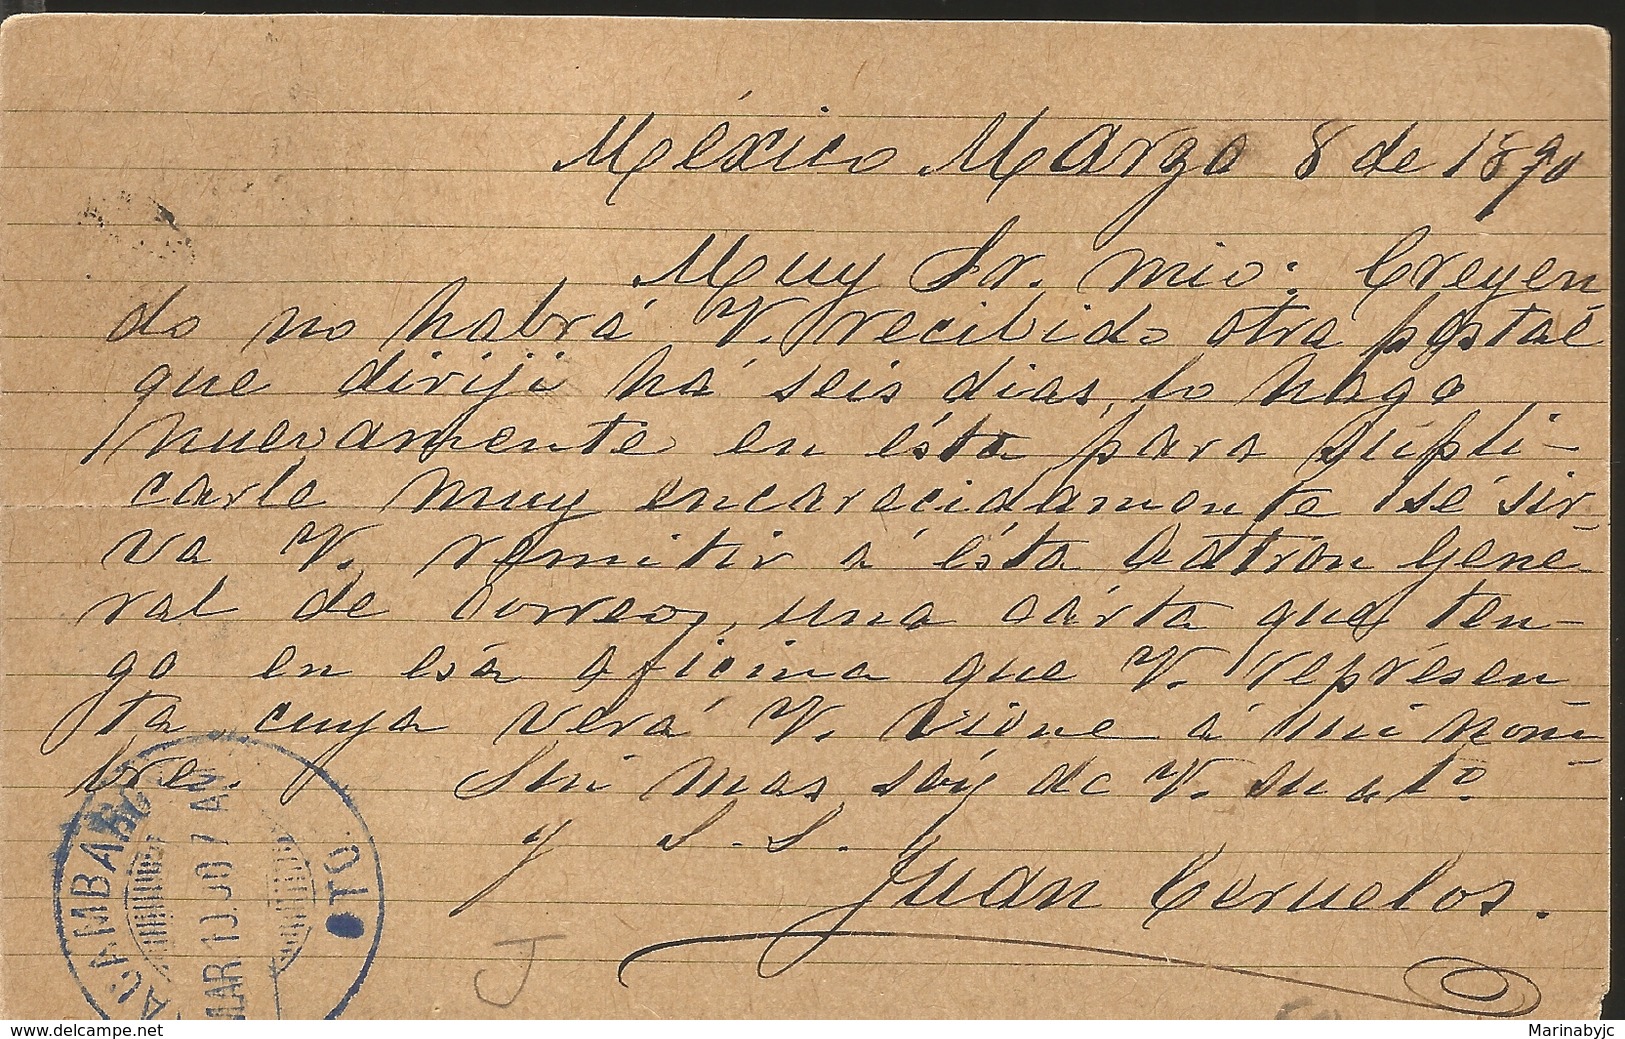 México Marzo 8 de 1890
Muy Sr. mio: Creyen
do no habrá V. recibido otra postal
que diriji há seis dias, lo hago
nuevamente en ésta para supli-
carle muy encarecidamente se sir-
va V. remitir á ésta General
ral de Correos, una carta que ten-
go en esa oficina que V. represen-
ta cuya verá V. viene á mi nom-
bre. Sin mas soy de V. su at°.
y S. S.
Juan Ceruelos.
ACAMBARO
MAR 10.90 7 AM
GTO.
www.delcampe.net
Marinabyjc